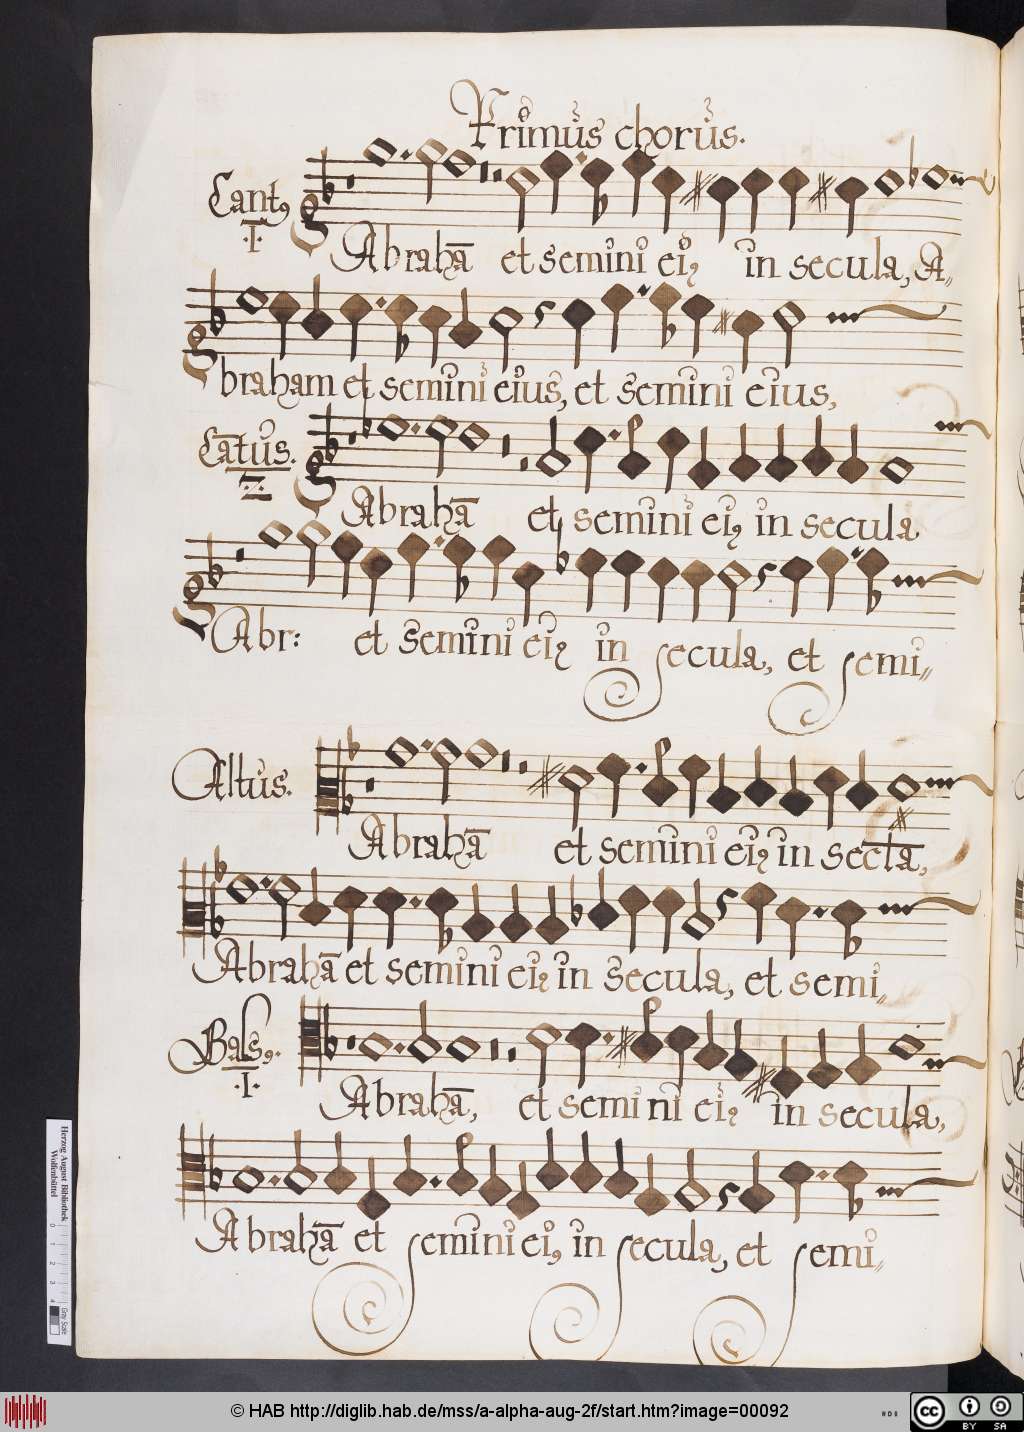 Primus chorus.
Cant9
.I.
Abrahā et semini ei9 in secula, A„
braham et semini eius, et semini eius,
Cātus.
.2.
Abrahā et semini ei9 in secula
Abr: et semini ei9 in secula, et semi„
Altus.
Abrahā et semini ei9 in secla,
Abrahā et semini ei9 in secula, et semi„
Bass9.
.I.
Abrahā, et semini ei9 in secula,
Abrahā et semini ei9 in secula, et semi„
Herzog August Bibliothek
Wolfenbüttel
0 1 2 3 4
Gray Scale
© HAB http://diglib.hab.de/mss/a-alpha-aug-2f/start.htm?image=00092
cc BY SA